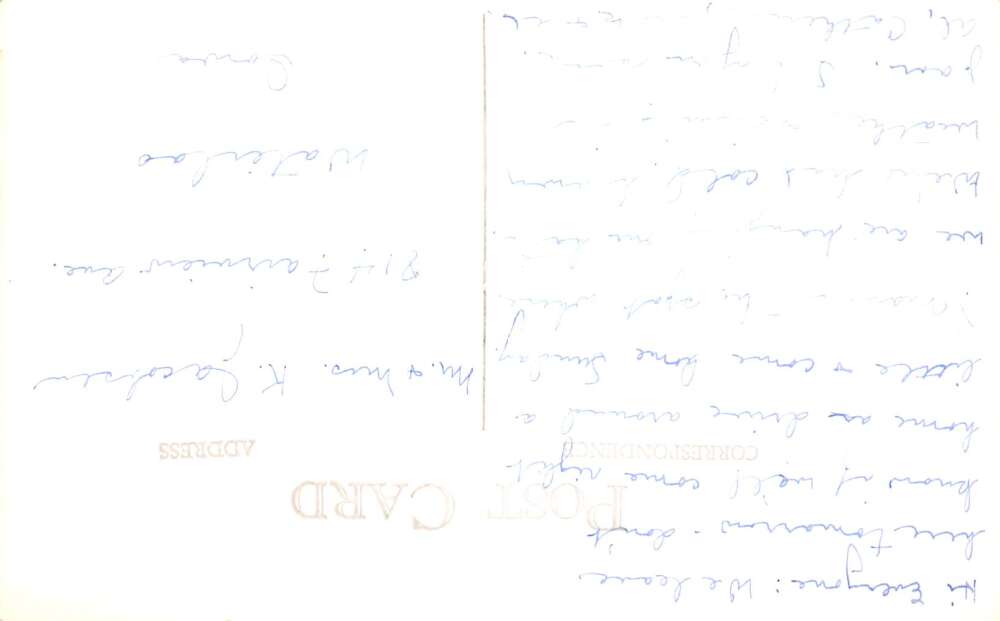 POST CARD
CORRESPONDENCE
ADDRESS
Hi Everyone: We leave
here tomorrow - don't
know if we'll come right
home or drive around a
little & come home Sunday.
the spot where
we are having
We've had cold & warm
weather
you
Al,
M. & Mrs. K. Jacobsen
Fairview Ave.
Waterloo
Iowa